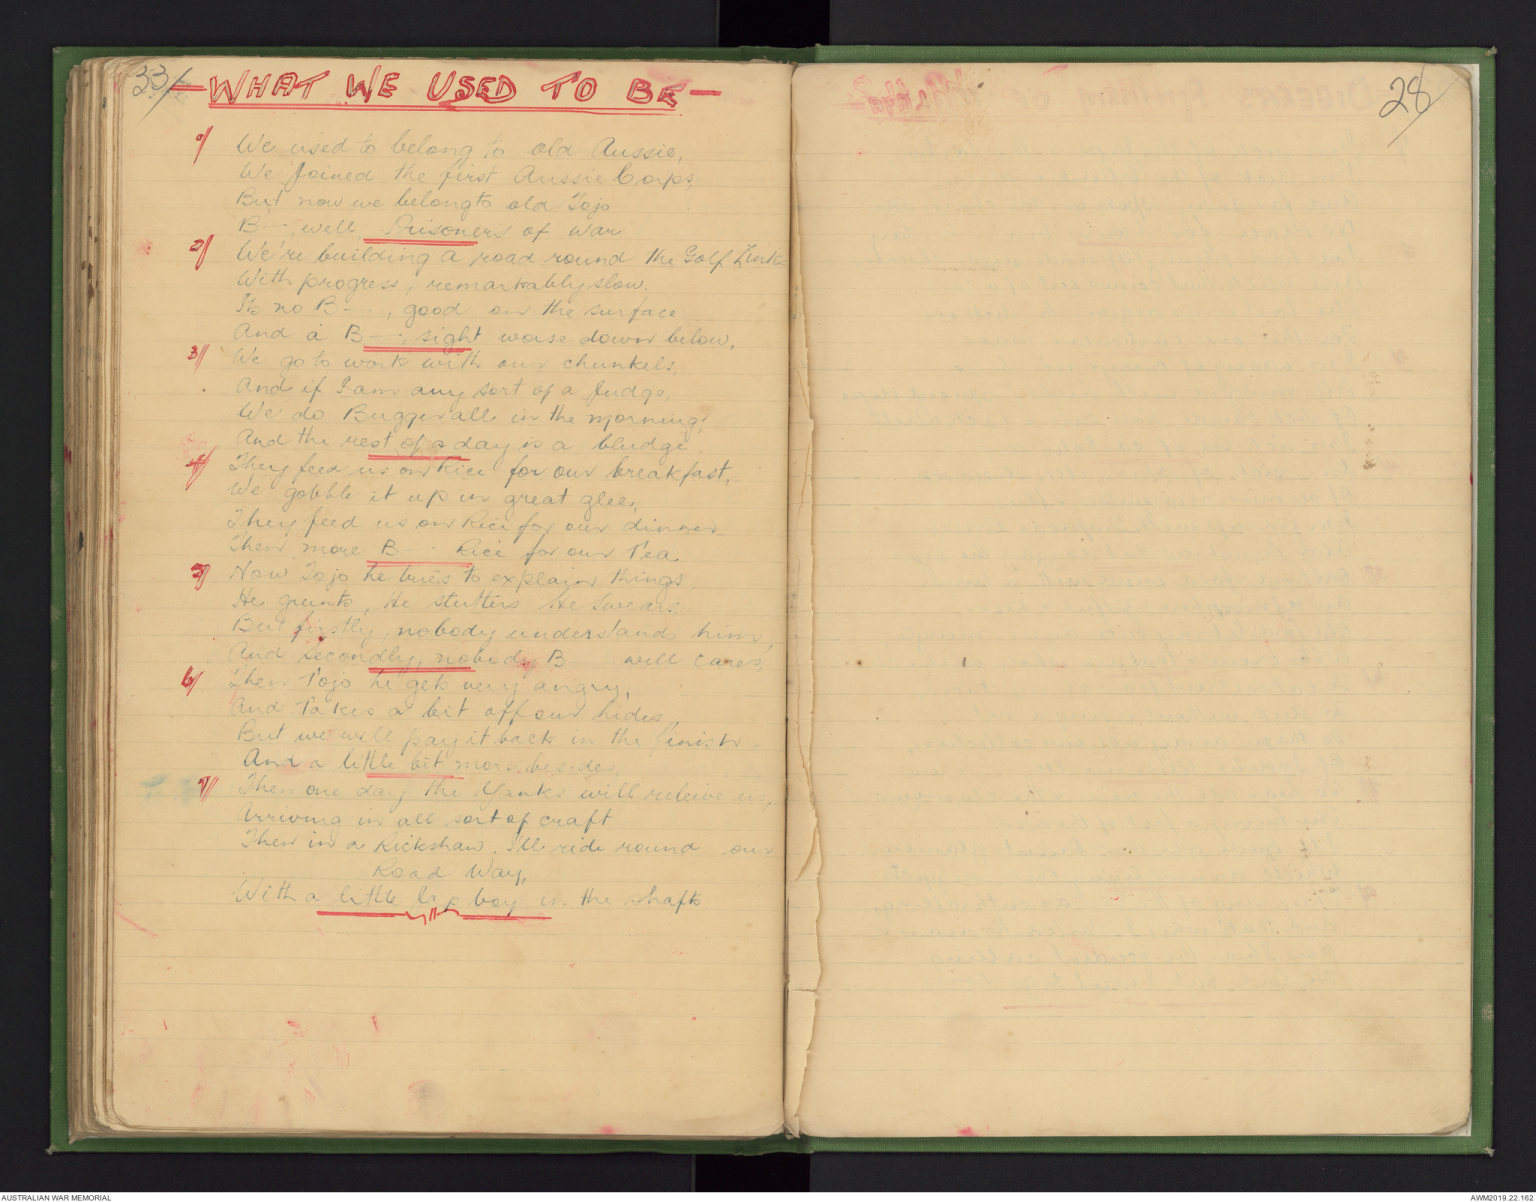 33/
- WHAT WE USED TO BE -
1/ We used to belong to old Aussie,
We Joined the first Aussie Corps,
But now we belong to old Tojo
B--, well Prisoners of War
2/ We're building a road round the Golf Links
With progress, remarkably slow.
Its no B--, good on the surface
And a B--, sight worse down below.
3/ We go to work with our chunkels,
And if I am any sort of a Judge,
We do Bugger all in the morning,
And the rest of a day is a bludge
4/ They feed us on Rice for our breakfast,
We gobble it up in great glee,
They feed us on Rice for our dinner
Then more B-- Rice for our Tea
5/ Now Tojo he tries to explain things
He grunts, He stutters He Swears
But firstly, nobody understands him,
And secondly, nobody B-- well cares,
6/ Then Tojo he gets very angry,
And Takes a bit off our hides,
But we will pay it back in the finish
And a little bit more besides
7/ Then one day the Yanks will releive us,
Arriving in all sort of craft
Then in a Rickshaw, I'll ride round our
Road Way,
With a little Jap boy in the shafts
28/
AUSTRALIAN WAR MEMORIAL
AWM2019.22.162